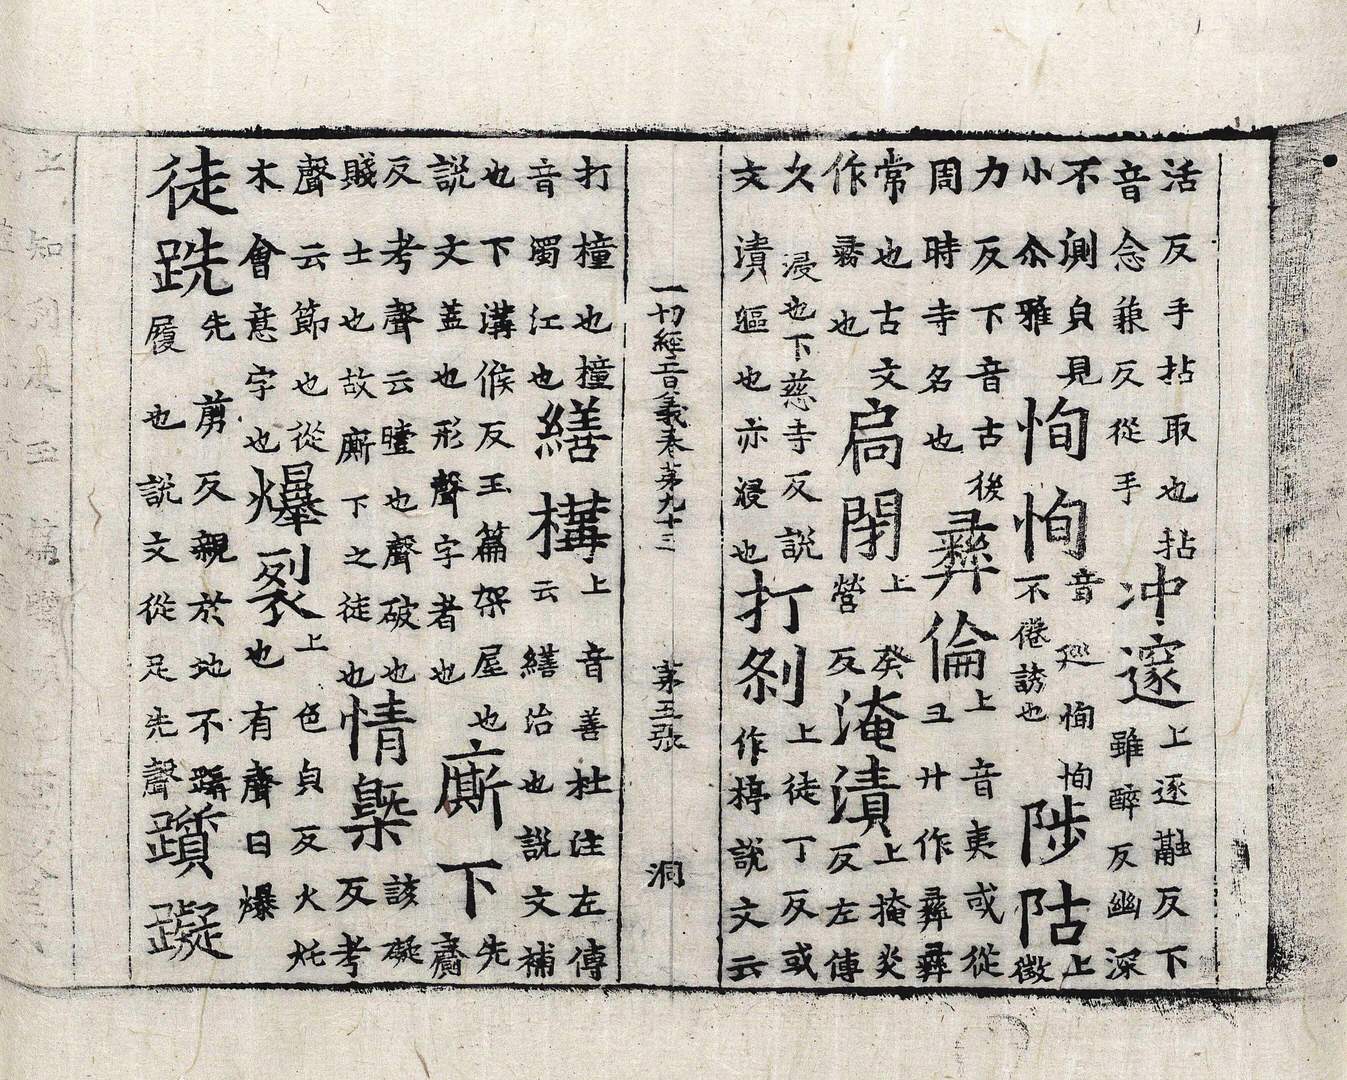 活反手拈取也拈
音念兼反從手
冲邃
上逐融反下
雖醉反幽深
不測皃見
小尒雅
恂恂
音廵恂恂
不倦誘也
陟岵
上
徵
力反下音古後
周時寺名也
彝倫
上音夷或從
彑廾作彞彞
常也古文
作彛也
扃閉
上癸
營反
淹漬
上掩炎
反左傳
久浸也下慈寺反說
文漬漚也亦浸也
打剎
上徒丁反或
作㯶說文云
一切經音義卷第九十三 第五張 洞
打橦也橦
音濁江也
繕構
上音善杜注左傳
云繕治也說文補
也下溝候反玉篇架屋也
說文蓋也形聲字者也
廝下
先
齎
反考聲云㬤也聲破也
賤士也故廝下之徒也
情槩
該礙
反考
聲云節也從
木會意字也
爆裂
上色皃反火烢
也有聲曰爆
徒跣
先剪反親於地不躡
履也說文從足先聲
躓礙